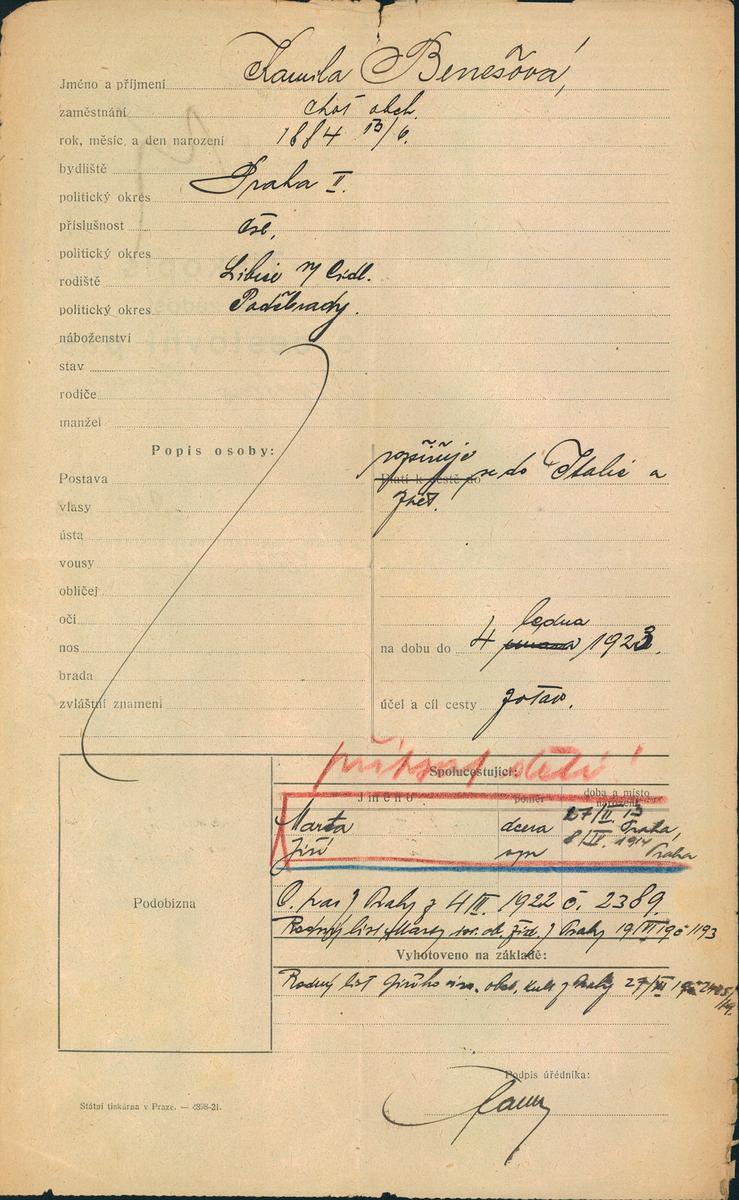 Jméno a příjmení Kamila Benešová,
zaměstnání choť obch.
rok, měsíc a den narození 1884 13/6.
bydliště
politický okres Praha II.
příslušnost čsl.
politický okres
rodiště Libice n/ Cidl.
politický okres Poděbrady.
náboženství
stav
rodiče
manžel
Popis osoby:
Postava
vlasy
ústa
vousy
obličej
oči
nos
brada
zvláštní znamení
rozšiřuje se do Italie a
Platí k cestě do
zpět.
ledna
na dobu do 4 1923.
účel a cíl cesty zotav.
připsat děti!
Spolucestující:
Jméno poměr doba a místo narození
Marta dcera 27/II. 13 Praha,
Jiří syn 8/IV. 1914 Praha
C. pas z Prahy z 4/III. 1922 č. 2389.
Rodný list z Prahy 19/VI 1193
Vyhotoveno na základě:
Rodný list Jiřího isr. obch. z Prahy 27/VII
Podobizna
Podpis úředníka:
Státní tiskárna v Praze. — 6898-21.